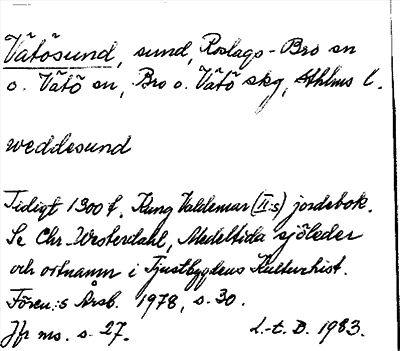 Vätösund, sund, Roslags-Bro sn
o. Vätö sn, Bro o. Vätö skg, Sthlms l.
weddesund
Tidigt 1300 t. Kung Valdemar (II:s) jordebok.
Se Chr. Westerdahl, Medeltida sjöleder
och ortnamn i Tjustbygdens Kulturhist.
Fören:s Årsb. 1978, s. 30.
Jfr ms. s. 27. L.-t. D. 1983.